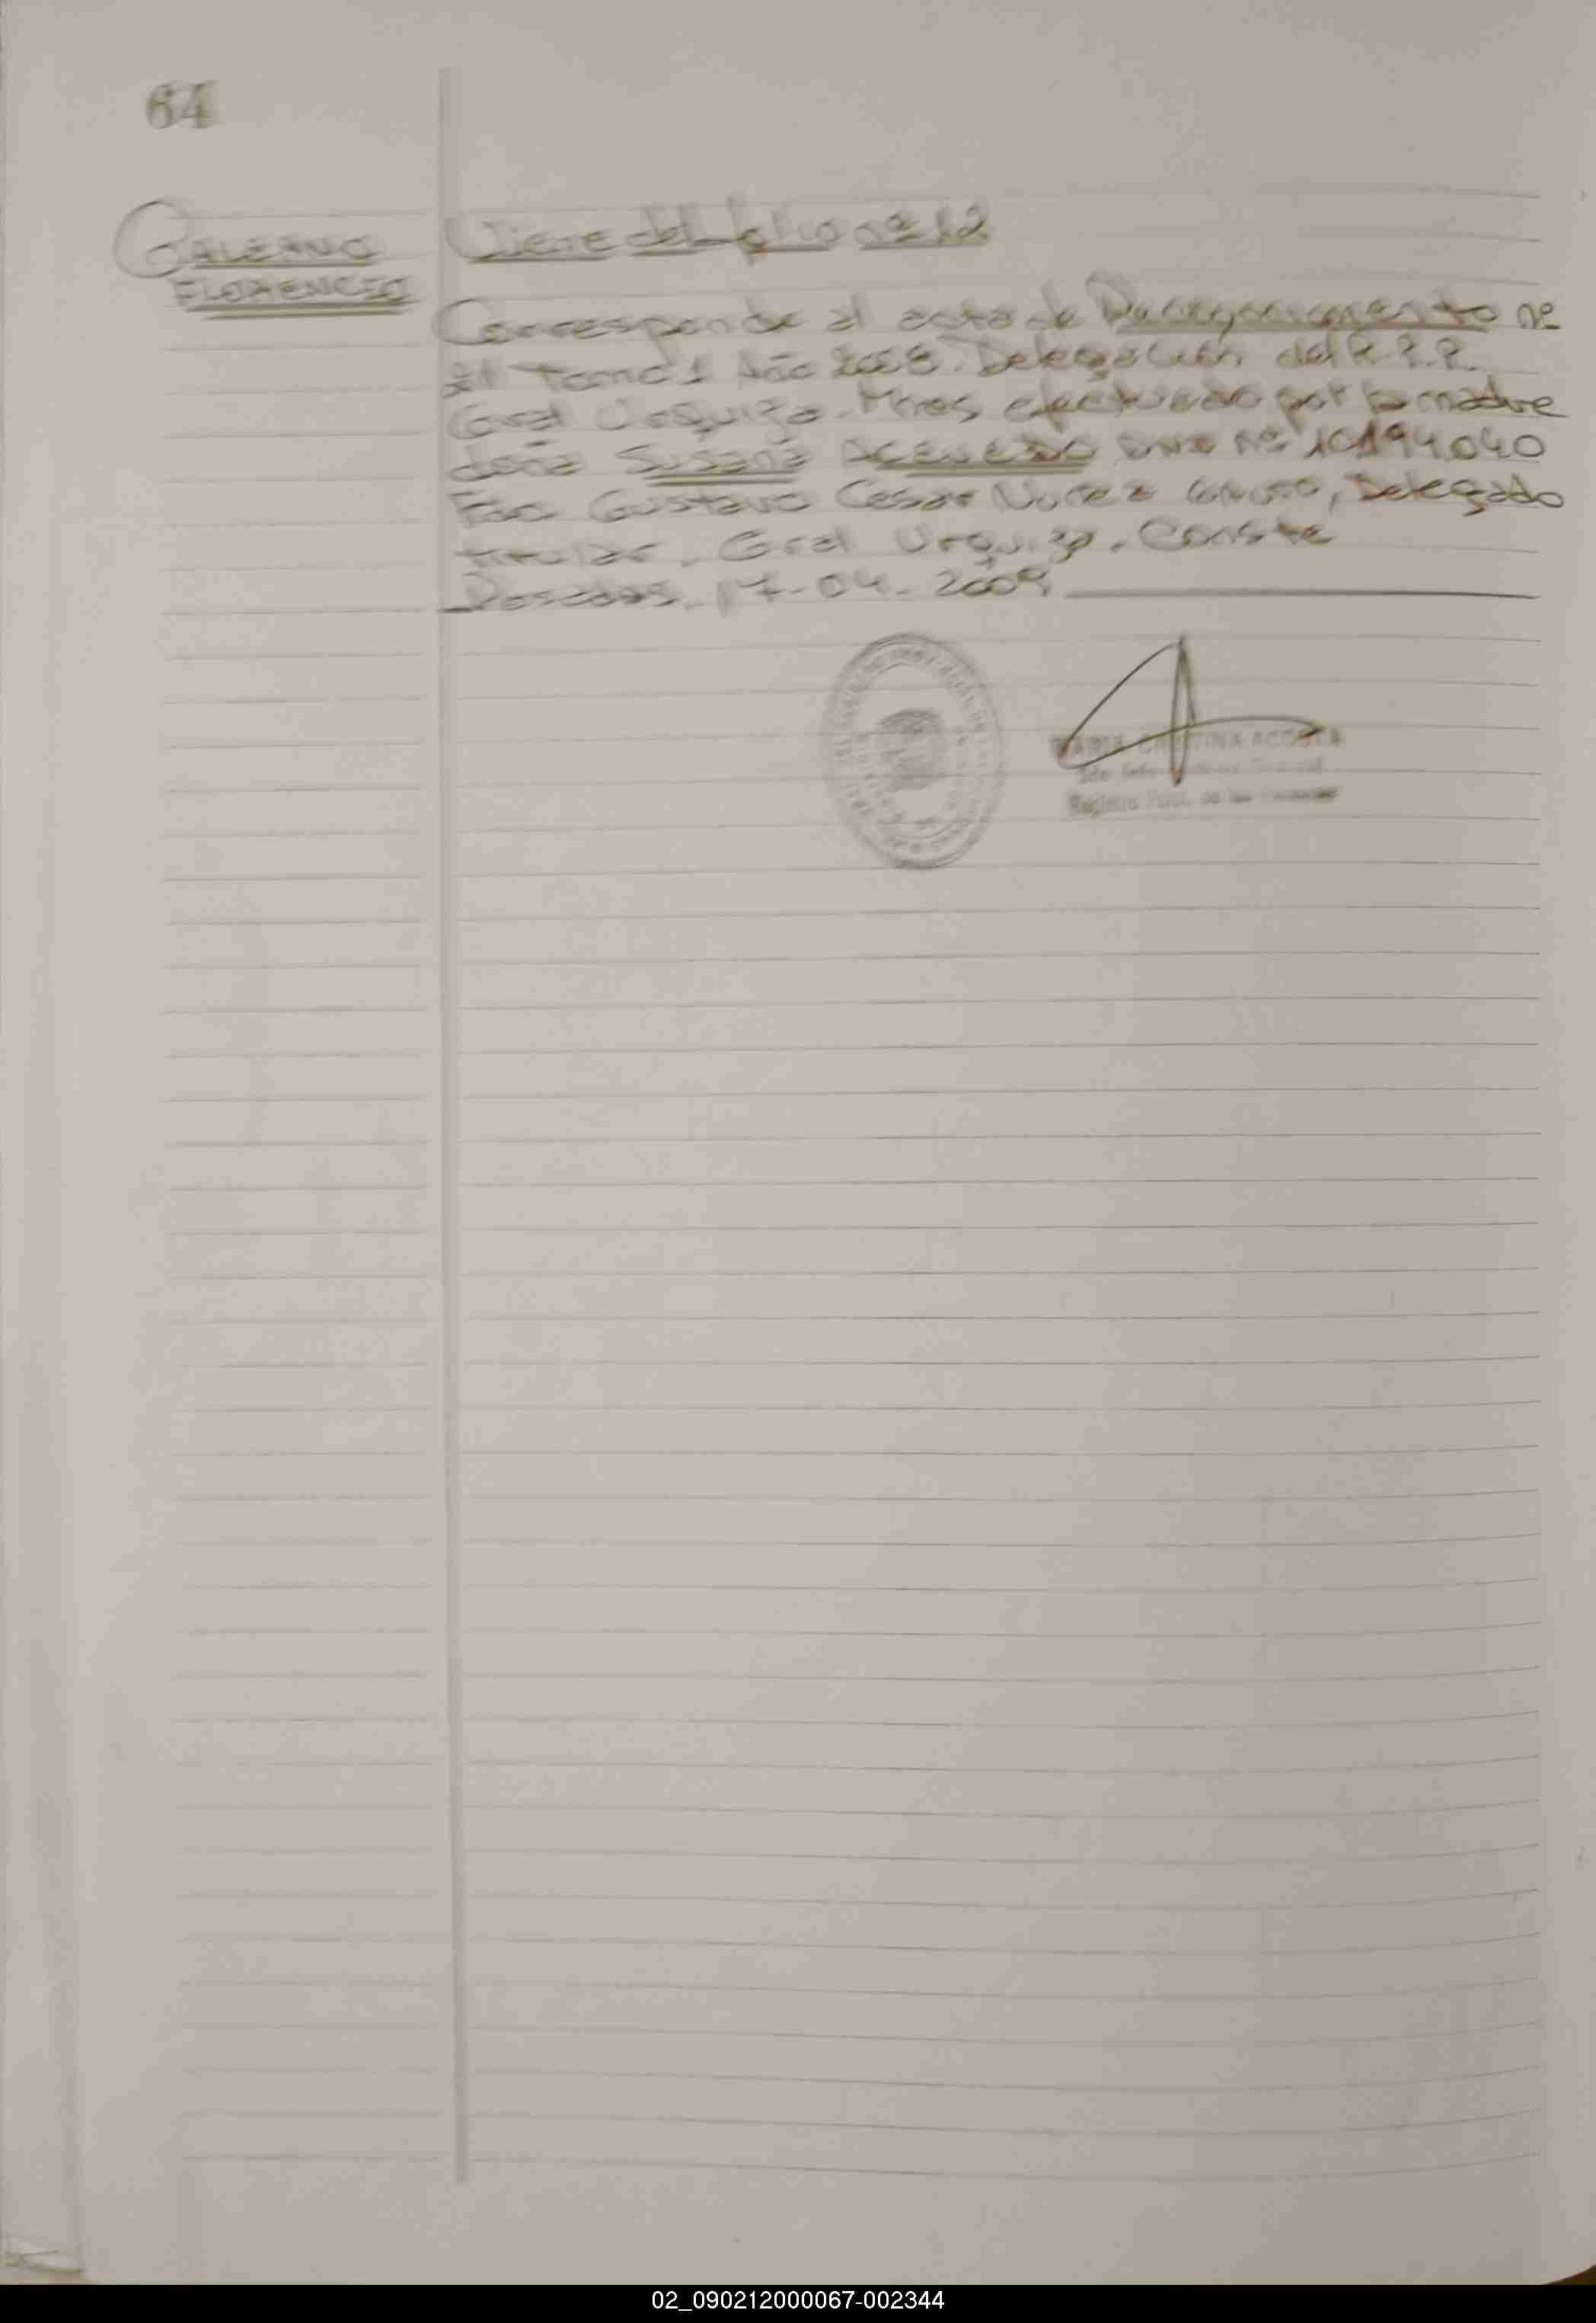 64
GALEANO
FLORENCIO
Viene del folio nº 12
Corresponde al acta de Reconocimiento nº
Tomo 1 Año 2008. Delegación del R.P.P.
Gral Urquiza. Mnes efectuado por la madre
doña Susana ACEVEDO DNI Nº 10194040
Fdo Gustavo Cesar Nuñez, Delegado
titular. Gral Urquiza. Conste
Posadas, 17-04-2009
MARIA CRISTINA ACOSTA
02_090212000067-002344